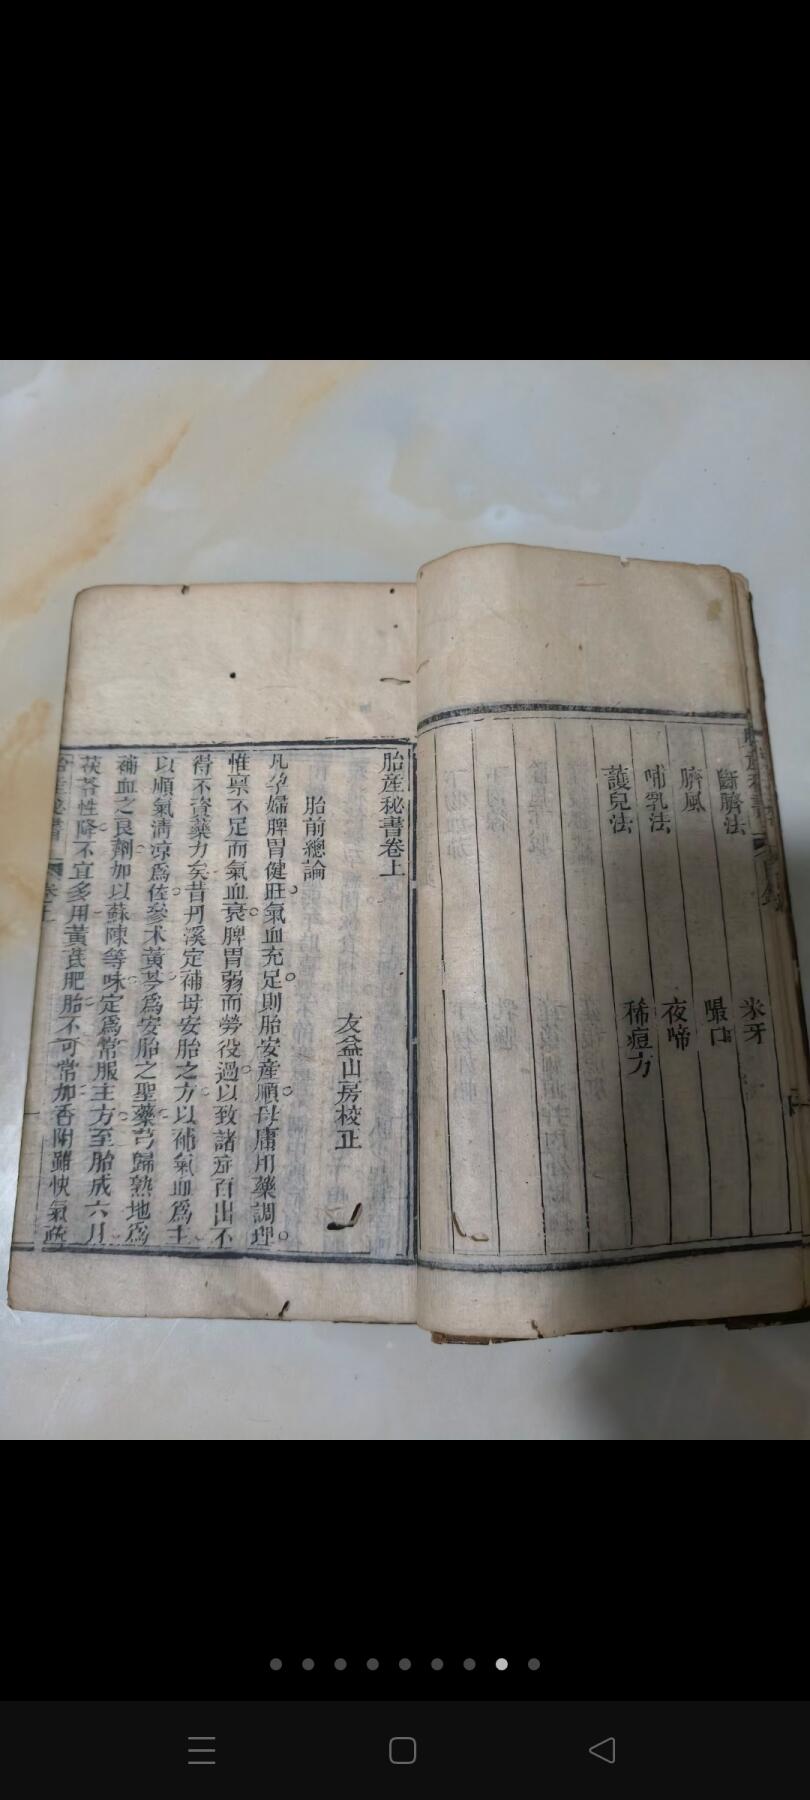 斷臍法
米牙
臍風
噤口
哺乳法
夜啼
護兒法
稀痘方
胎産秘書卷上
友益山房校正
胎前總論
凡孕婦脾胃健旺氣血充足則胎安産順母庸用藥調理
惟禀不足而氣血衰脾胃弱而勞役過以致諸症百出不
得不資藥力矣昔丹溪定補母安胎之方以補氣血爲主
以順氣清凉爲佐參术黃芩爲安胎之聖藥芎歸熟地爲
補血之良劑加以蘇陳等味定爲常服主方至胎成六月
茯苓性降不宜多用黃芪肥胎不可常加香附雖快氣疏